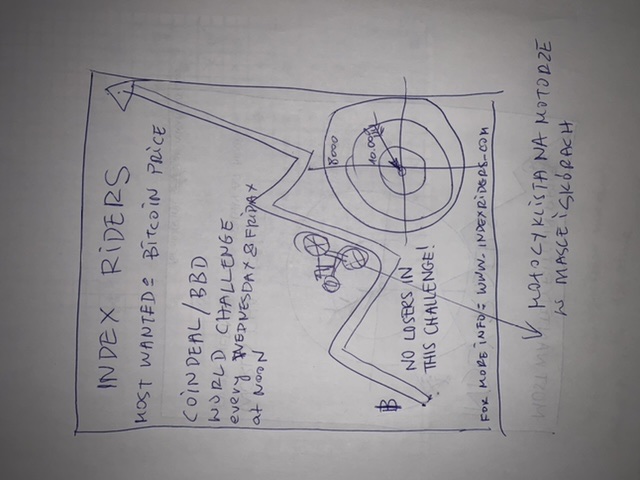 INDEX RIDERS
MOST WANTED: BITCOIN PRICE
COINDEAL/BBD
WORLD CHALLENGE
every WEDNESDAY & FRIDAY
at NOON
8000
10.000
NO LOSERS IN
THIS CHALLENGE!
FOR MORE INFO: WWW.INDEXRIDERS.COM
MOTOCYKLISTA NA MOTORZE
W MASCE I SKÓRACH